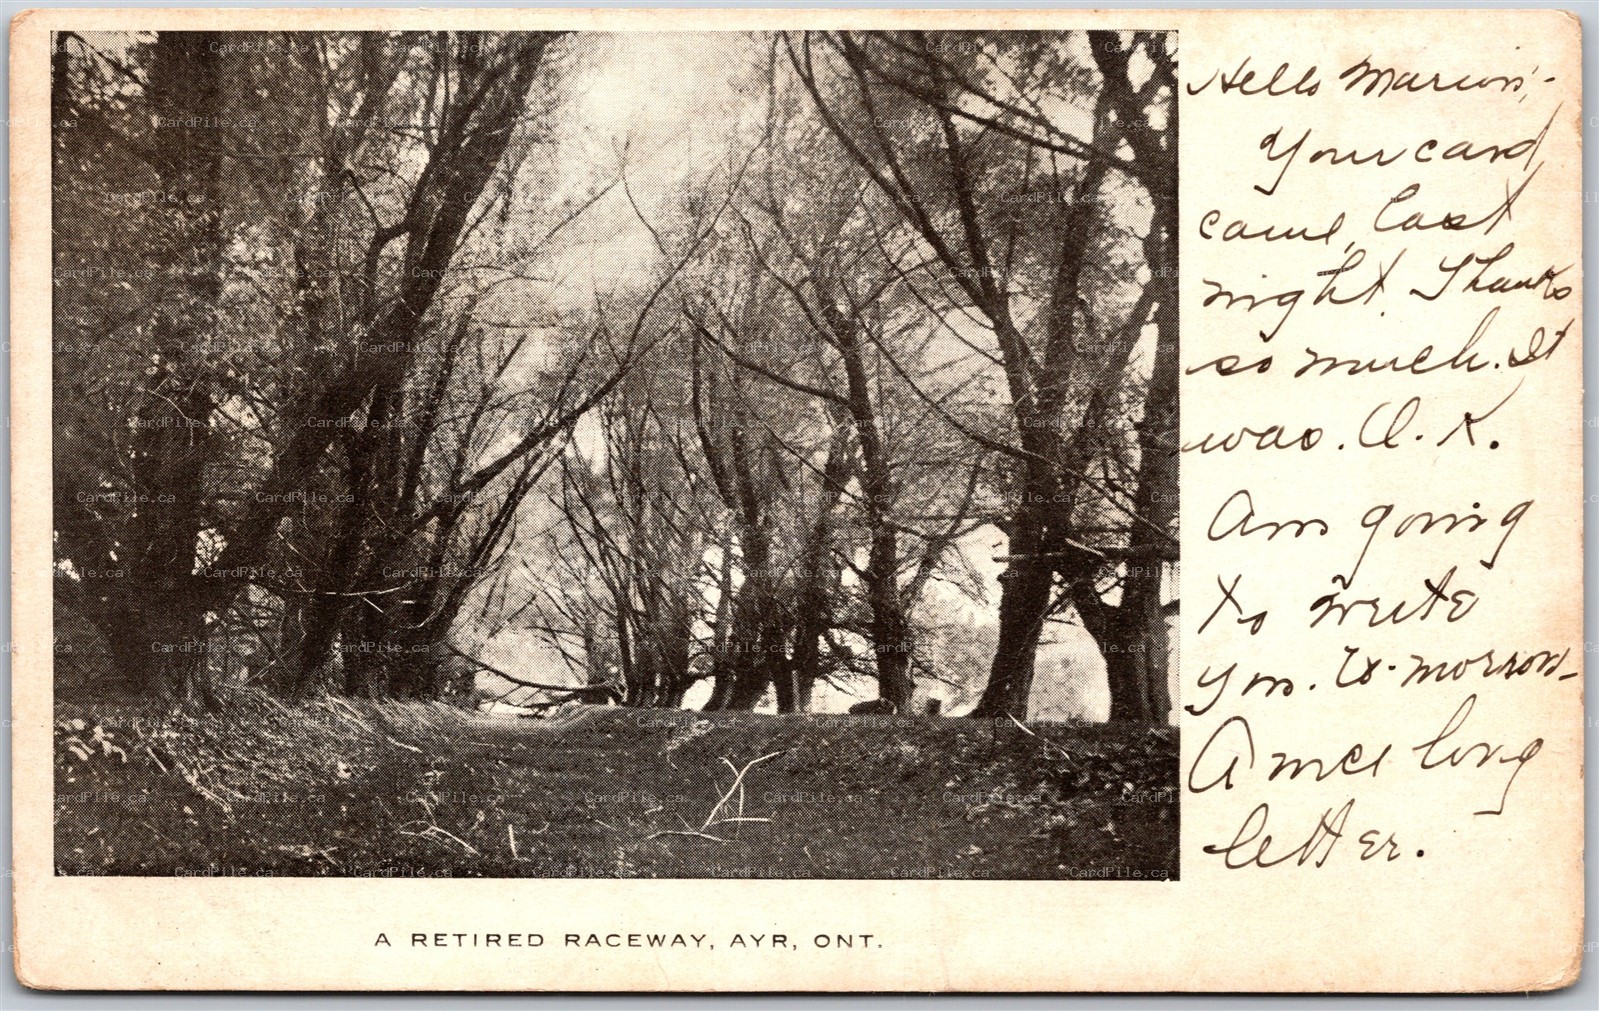 Hello Marion,-
Your card
came, last
night. Thanks
so much. It
was. O.K.
Am going
to write
you. to-morrow-
A nice long
letter.
A RETIRED RACEWAY, AYR, ONT.
CardPile.ca